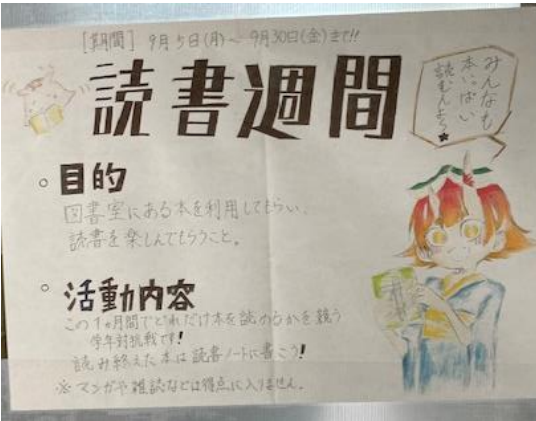 [期間] 9月5日(月)～ 9月30日(金)まで!!
読書週間
みんなも
本いっぱい
読むんよ
○ 目的
図書室にある本を利用してもらい、
読書を楽しんでもらうこと。
○ 活動内容
この1ヵ月間でどれだけ本を読めるかを競う
学年対抗戦です!
読み終えた本は読書ノートに書こう!
※ マンガや雑誌などは得点に入りません。